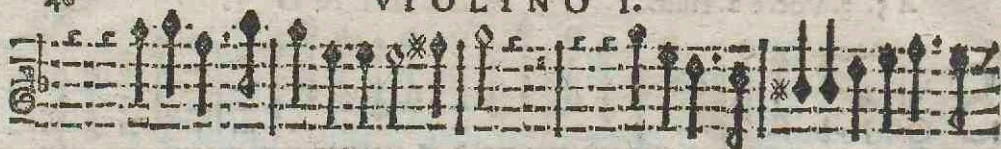 VIOLINO I.